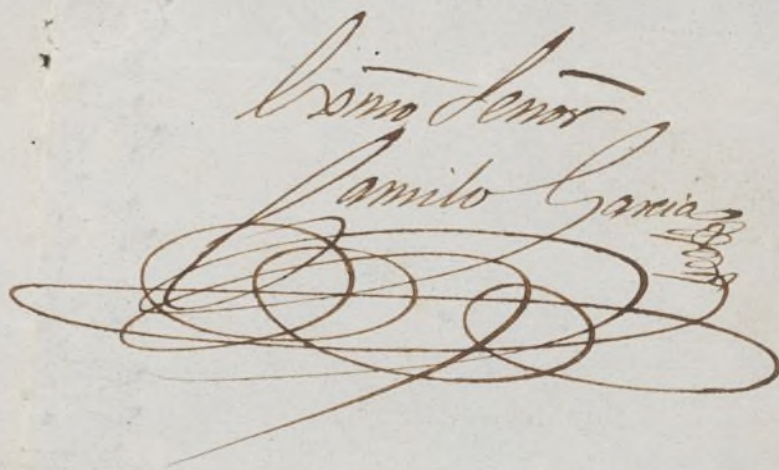 Exmo Señor
Camilo Garcia